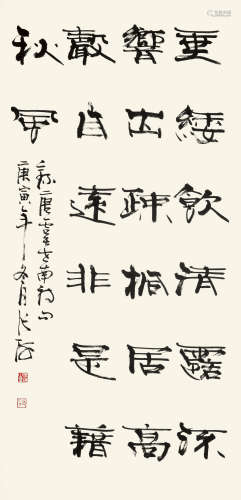 垂緌飲清露流
響出疎桐居高
聲自遠非是藉
秋風
錄唐虞世南詩句
庚寅年冬月張海